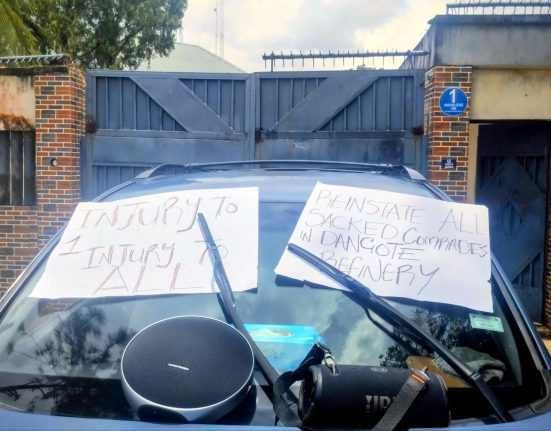 INJURY TO
1 INJURY TO
ALL
REINSTATE ALL
SACKED COMRADES
IN DANGOTE
REFINERY
1